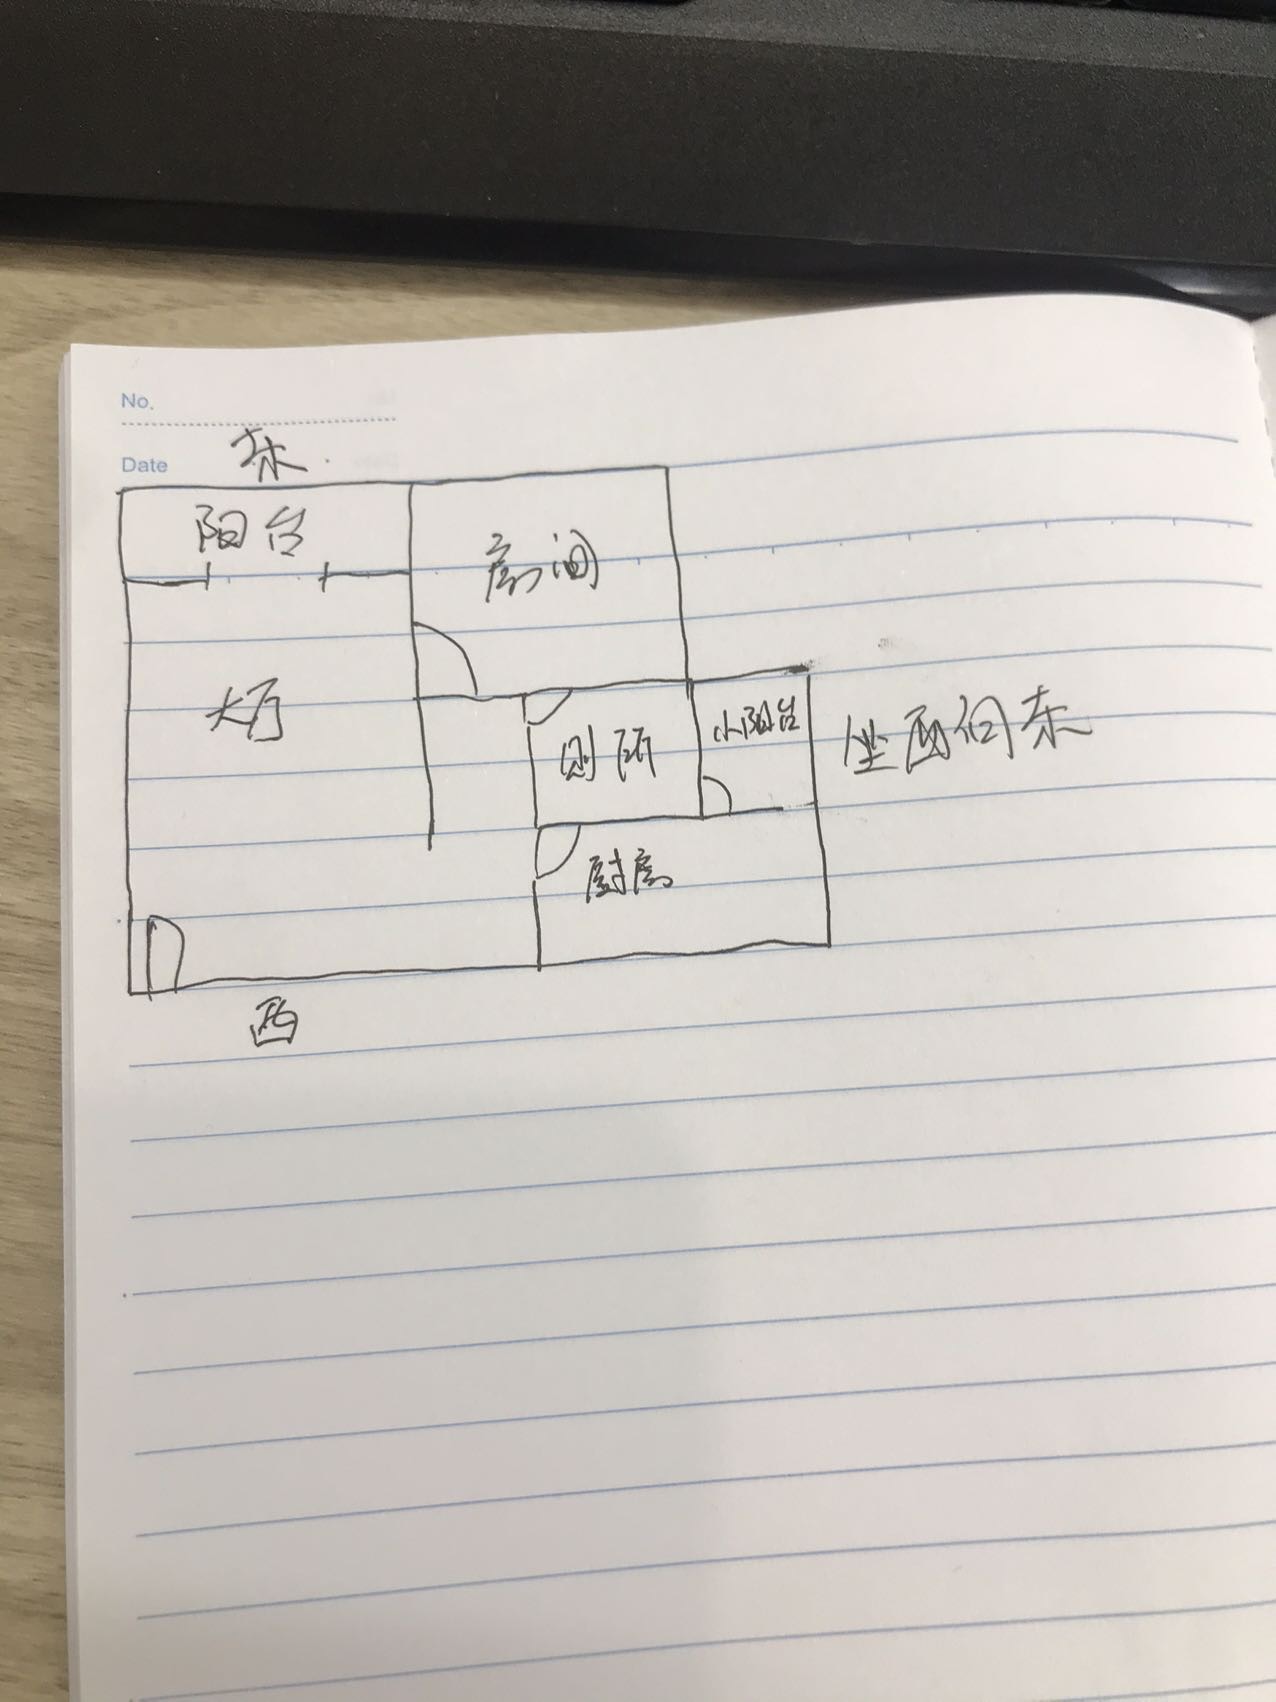 No.
Date
东
阳台
房间
大厅
厕所
小阳台
坐西向东
厨房
西